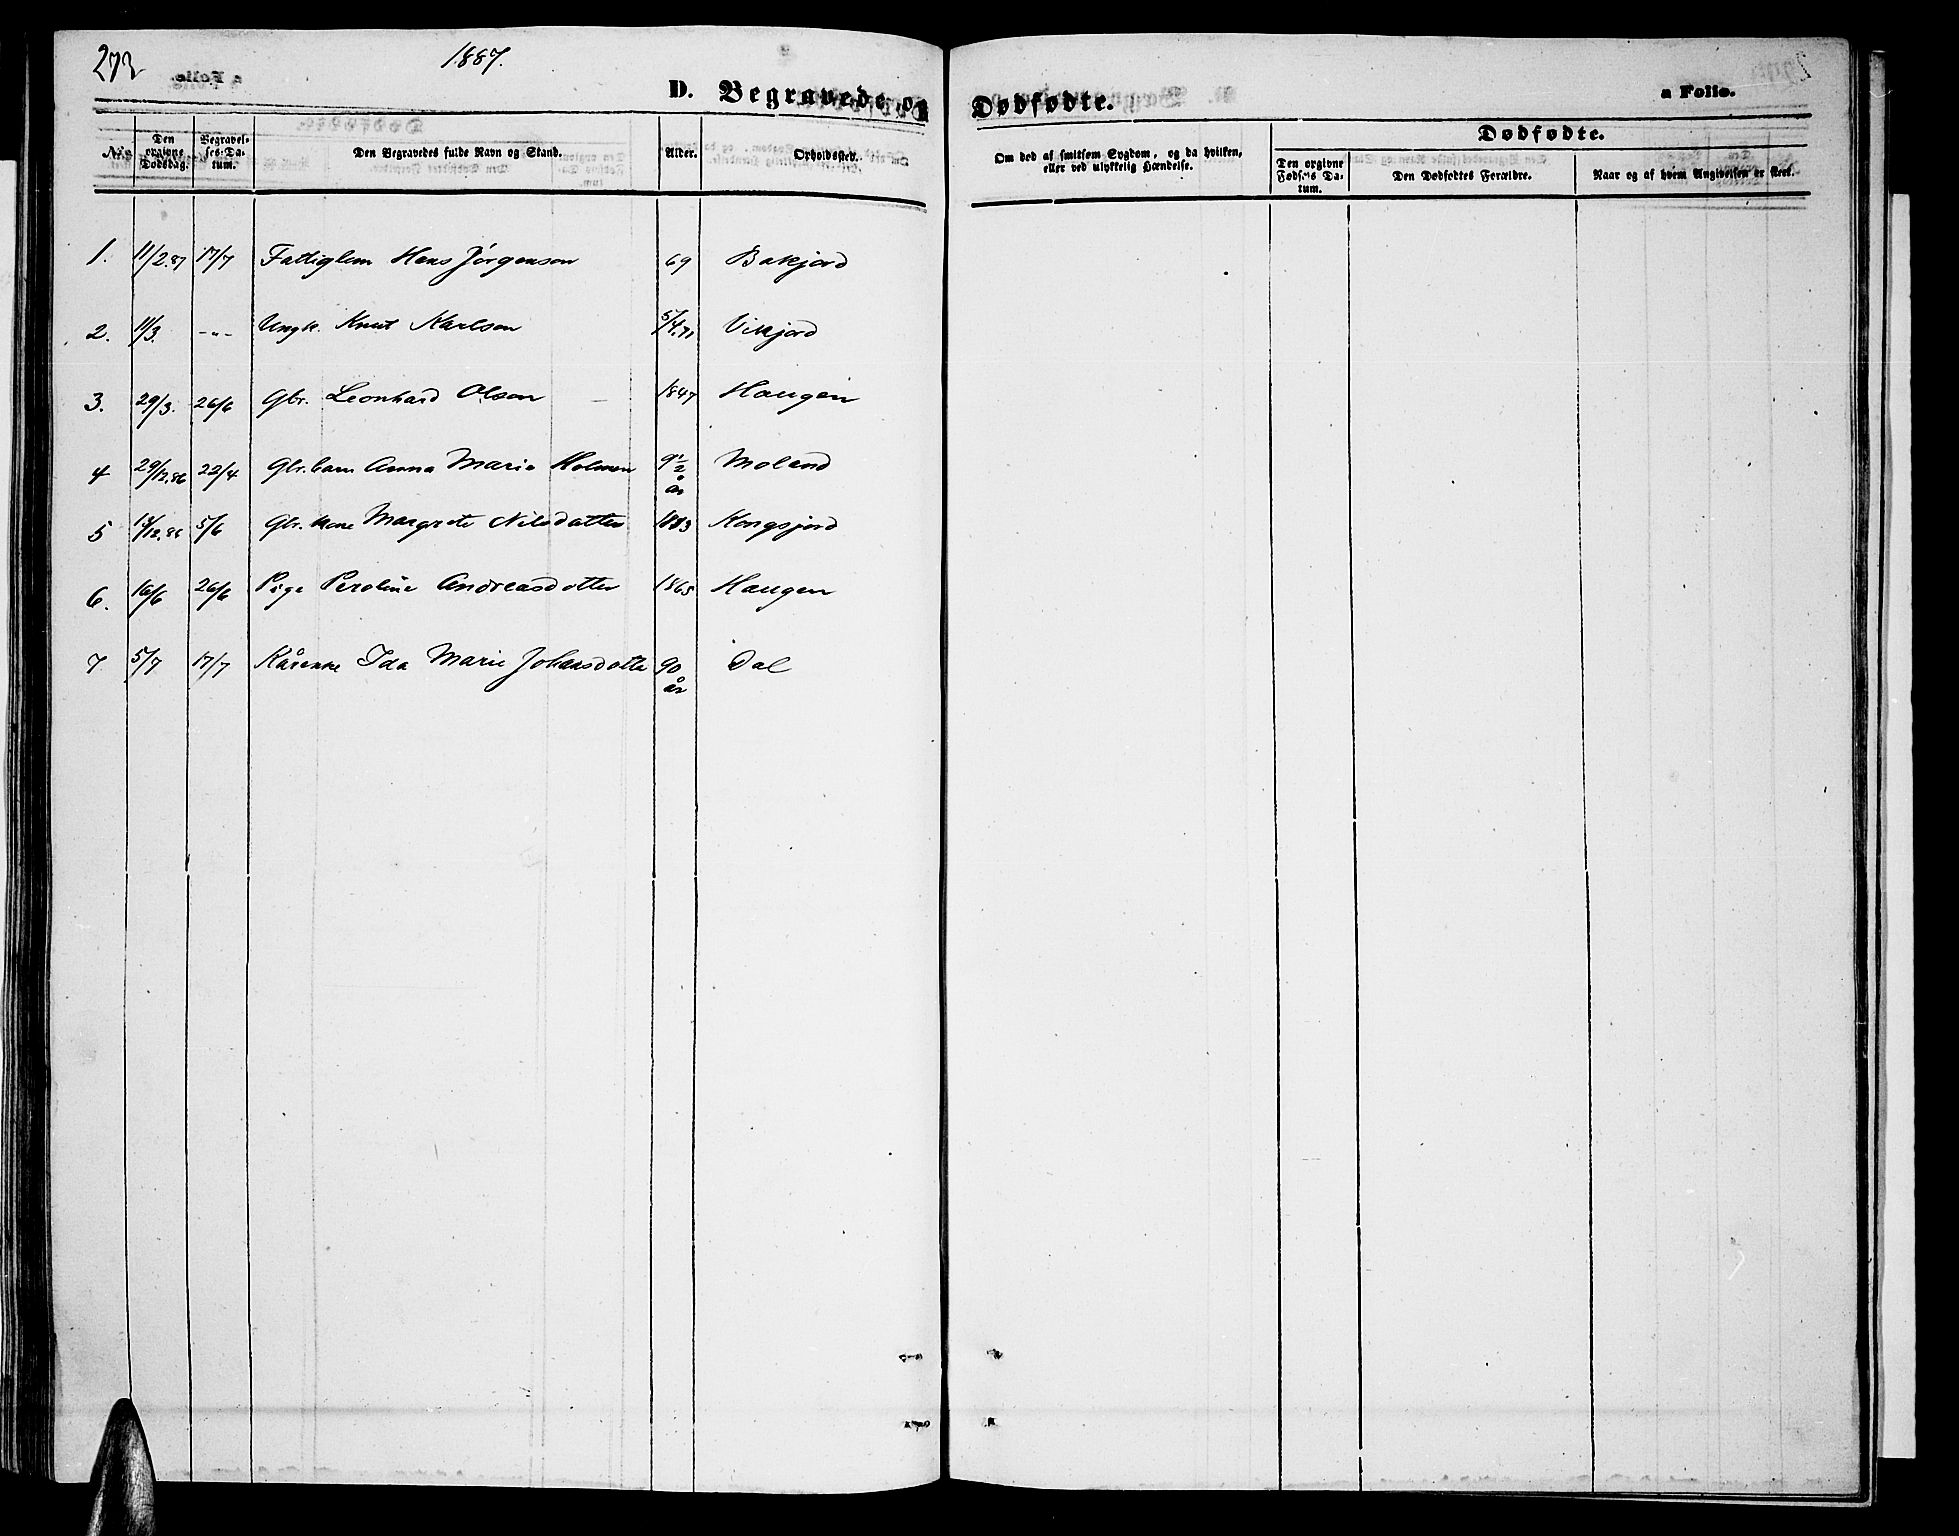 272
1887.
D. Begravede og Dødfødte.
a Folio.
No.
Den opgivne Dødsdag.
Begravelses-Datum.
Den Begravedes fulde Navn og Stand.
Alder.
Opholdssted.
Om død af smitsom Sygdom, og da hvilken, eller ved ulykkelig Hændelse.
Dødfødte.
Den opgivne Fødsels Datum.
Den Dødfødtes Forældre.
Naar og af hvem Angivelsen er skeet.
1. 11/2.87 17/7 Fattiglem Hans Jørgenson 69 Bakjord
2. 11/3. -"- Ungk. Knut Karlson 5/4.71 Vikjord
3. 29/3. 26/6 Gbr. Leonhard Olson 1847 Haugen
4 29/12.86 22/4 Gbr. barn Anna Marie Holmen 9 1/2 år Moland
5 /12.86 5/6 Gbr. kone Margrete Nilsdatter Kongsjord
6. 16/6 26/6 Pige Peroline Andreasdotter 1865 Haugen
7. 5/7 17/7 Kårenke Ida Marie Johansdotte 90 år Dal